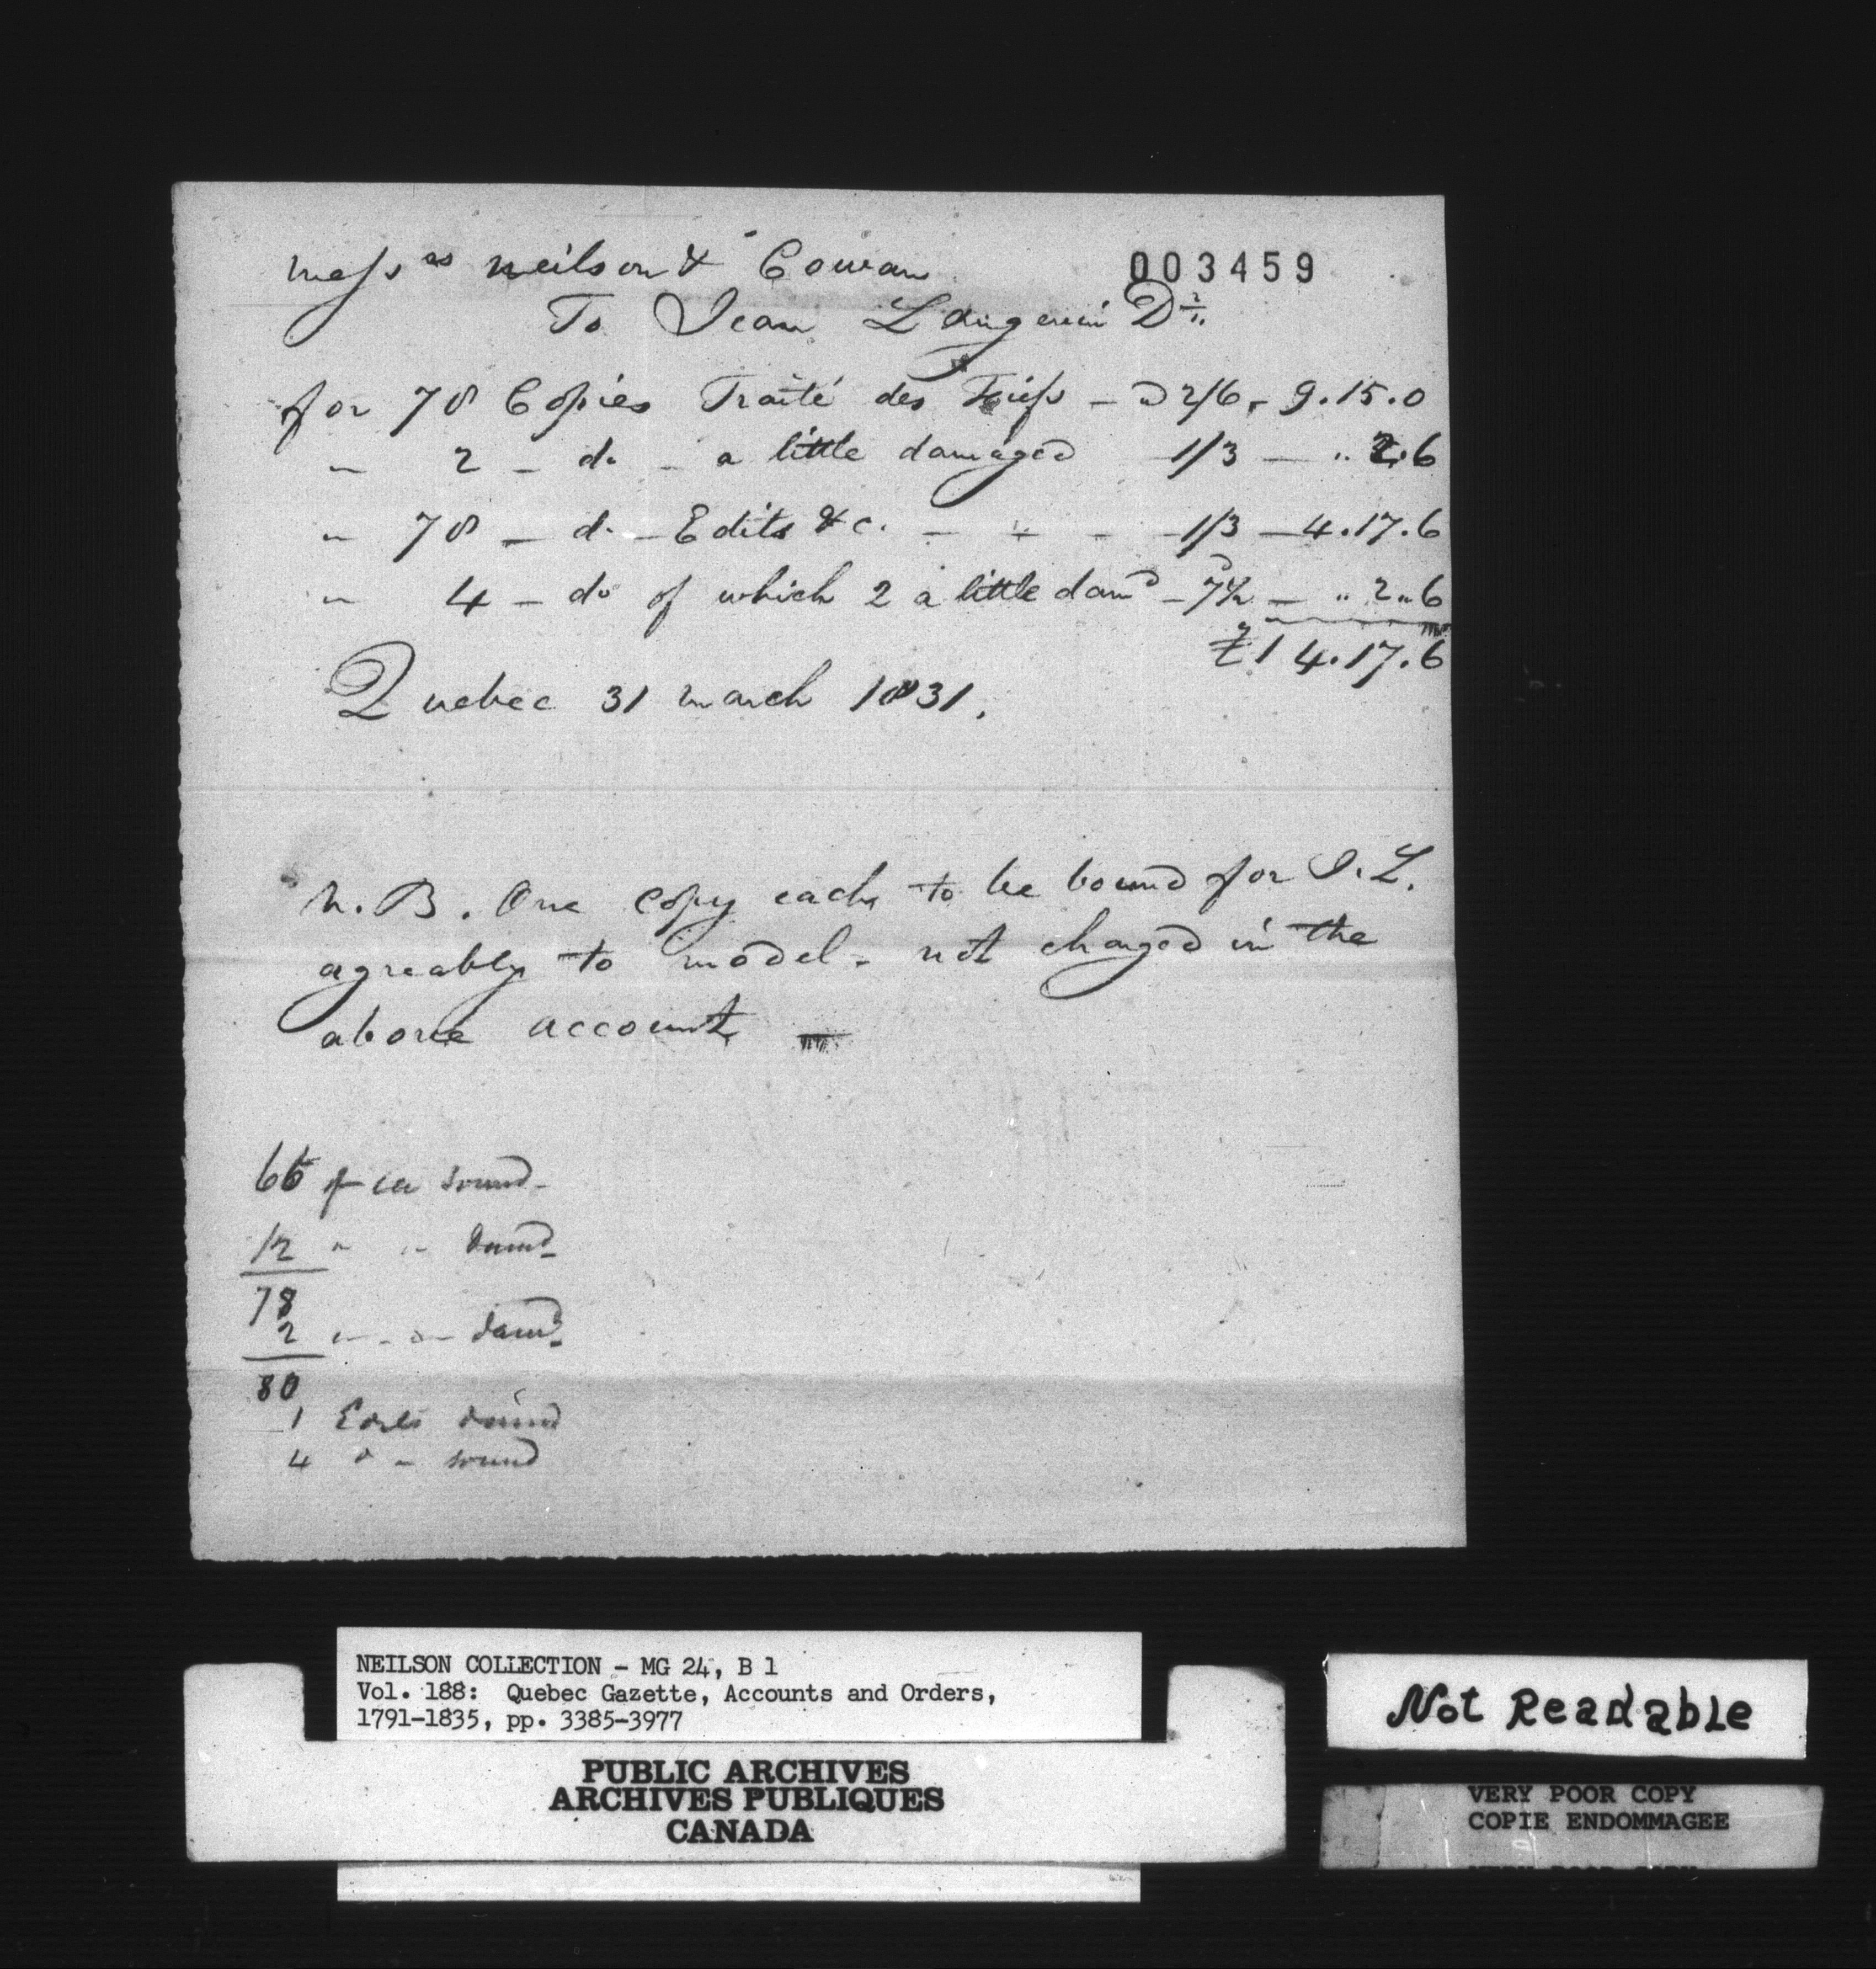 Mess rs Neilson & Cowan 003459
To Jean Langevin Dr.
for 78 Copies Traité des Fiefs - @ 2/6 - 9.15.0
" 2 - do - a little damaged 1/3 - " 2.6
" 78 - do - Edits &c. - " - 1/3 - 4.17.6
" 4 - do of which 2 a little damd - 7½d - " 2 " 6
£14.17.6
Quebec 31 March 1831.
N.B. One copy each to be bound for J.L.
agreably to model - not charged in the
above account
66 of sound -
12 " " damd
78
2 " - " - damd
80
1 Edits damd
4 do - sound
NEILSON COLLECTION - MG 24, B 1
Vol. 188: Quebec Gazette, Accounts and Orders,
1791-1835, pp. 3385-3977
PUBLIC ARCHIVES
ARCHIVES PUBLIQUES
CANADA
Not Readable
VERY POOR COPY
COPIE ENDOMMAGEE